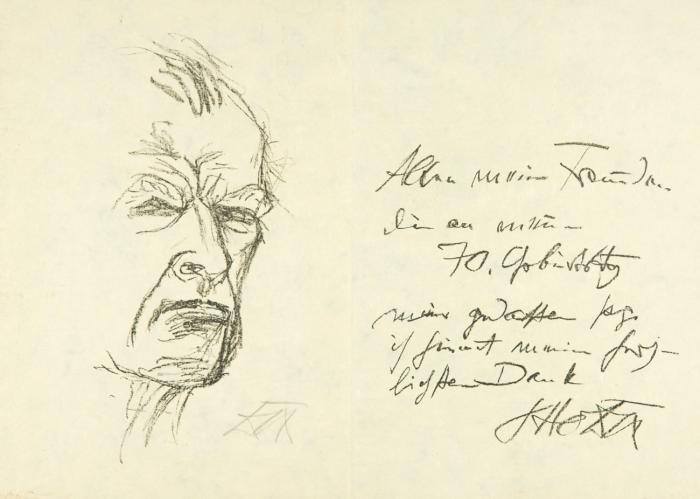 DIX
Allen meinen Freunden
die an meinem
70. Geburtstag
meiner gedachten sage
ich hiermit meinen herz-
lichsten Dank
Otto Dix